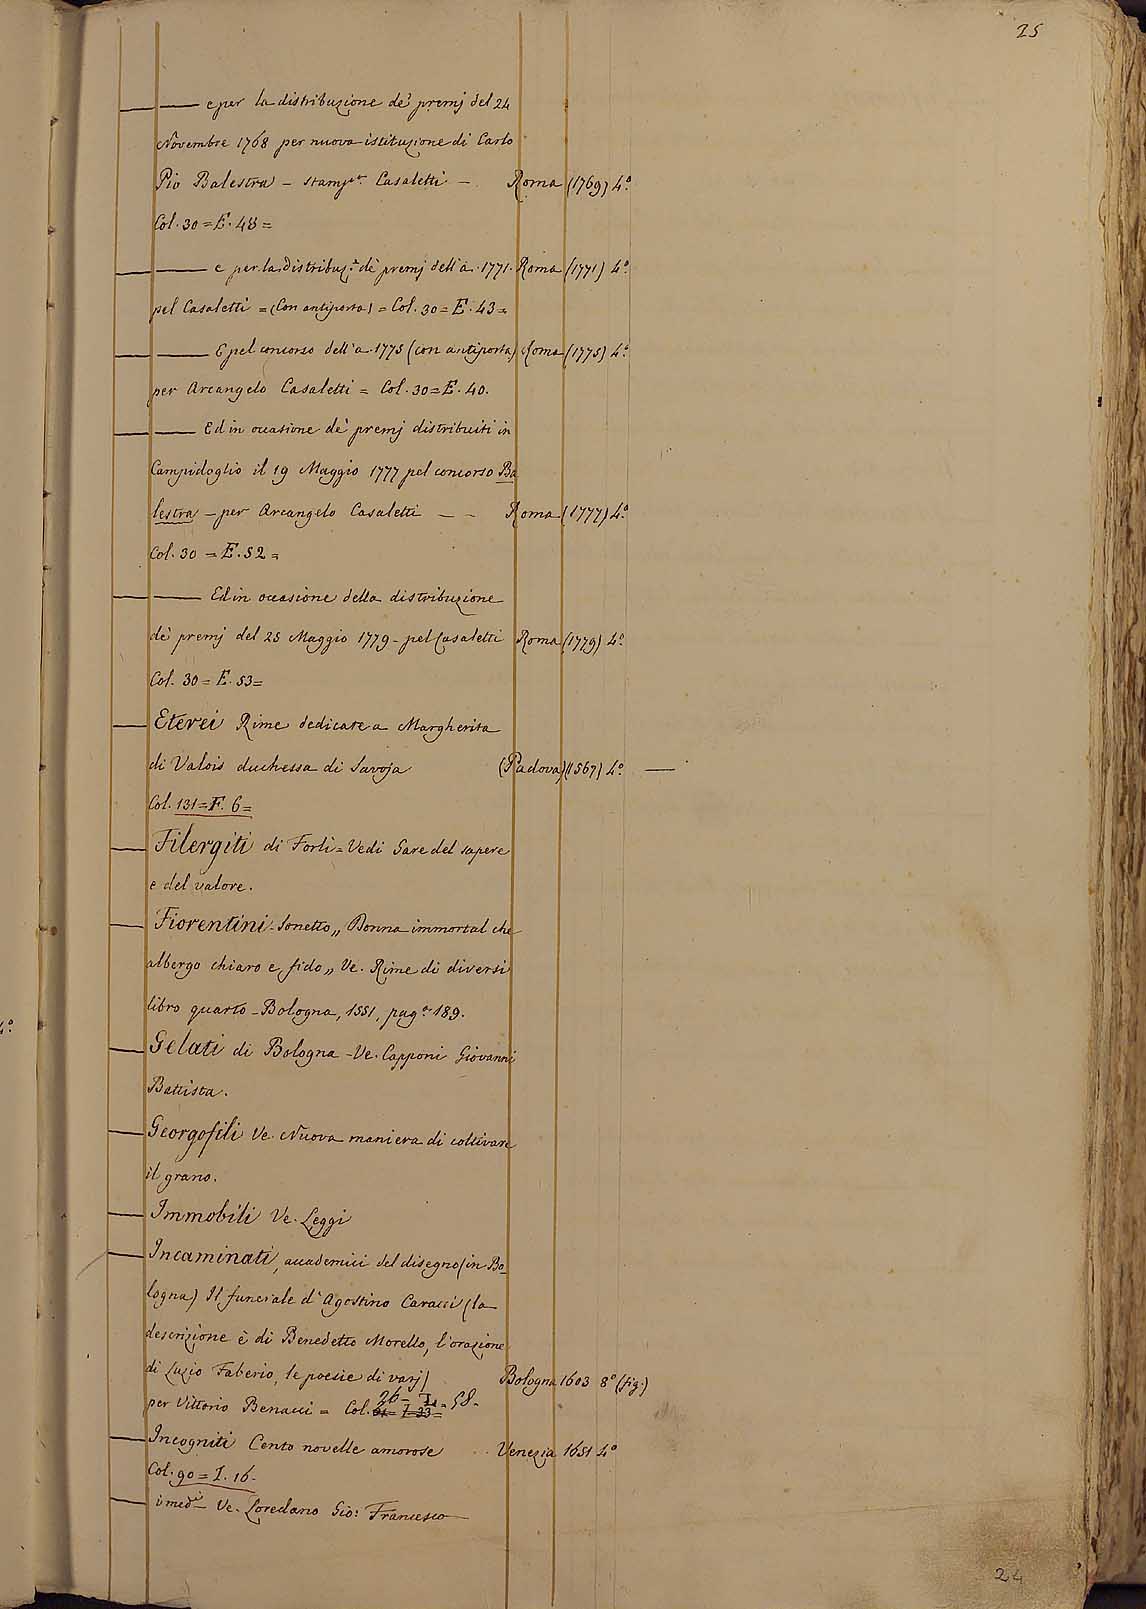 25
— — e per la distribuzione de' premj del 24
Novembre 1768 per nuova istituzione di Carlo
Pio Balestra – stamp.ⁱᵃ Casaletti – Roma (1769) 4.º
Col. 30 = E. 48 =
— — e per la distribuz.ᵉ de' premj dell'a. 1771. Roma (1771) 4.º
pel Casaletti = (Con antiporta) = Col. 30 = E. 43 =
— — E pel concorso dell'a. 1775 (con antiporta) Roma (1775) 4.º
per Arcangelo Casaletti = Col. 30 = E. 40.
— — Ed in occasione de' premj distribuiti in
Campidoglio il 19 Maggio 1777 pel concorso Ba
lestra – per Arcangelo Casaletti – – Roma (1777) 4.º
Col. 30 = E. 52 =
— — Ed in occasione della distribuzione
de' premj del 25 Maggio 1779 – pel Casaletti Roma (1779) 4.º
Col. 30 = E. 53 =
— Eterei Rime dedicate a Margherita
di Valois duchessa di Savoja (Padova) (1567) 4.º —
Col. 131 = F. 6 =
— Filergiti di Forlì = Vedi Gare del sapere
e del valore.
— Fiorentini – Sonetto „ Donna immortal che
albergo chiaro e fido „ Ve. Rime di diversi
libro quarto – Bologna, 1551, pag.ᵃ 189.
4.º
— Gelati di Bologna – Ve. Capponi Giovanni
Battista.
— Georgofili Ve. Nuova maniera di coltivare
il grano.
— Immobili Ve. Leggi
— Incaminati, accademici del disegno (in Bo
logna) Il funerale d'Agostino Caracci (la
descrizione è di Benedetto Morello, l'orazione
di Luzio Faberio, le poesie di varj) Bologna 1603 8º (fig.)
per Vittorio Benacci = Col. 26 – I. = 58 –
— Incogniti Cento novelle amorose .. Venezia 1651 4º
Col. 90 = I. 16 –
— i med.ⁱ – Ve. Loredano Gio: Francesco —
24